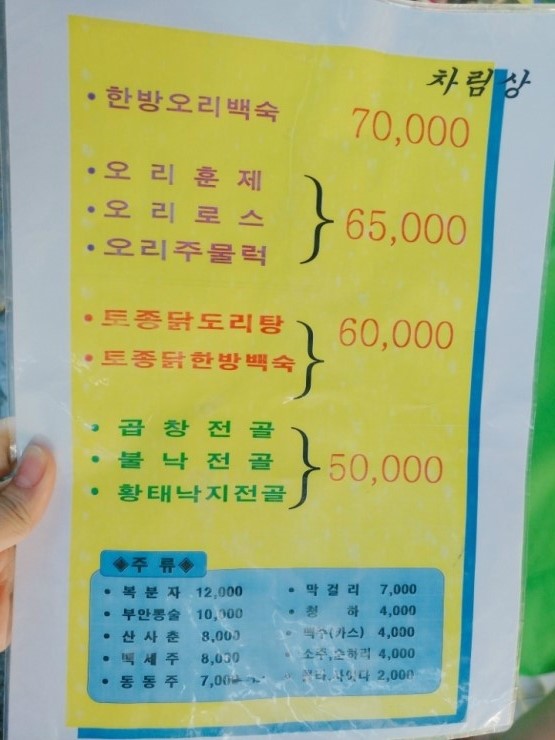 차림상
• 한방오리백숙 70,000
• 오리훈제
• 오리로스 65,000
• 오리주물럭
• 토종닭도리탕 60,000
• 토종닭한방백숙
• 곱창전골
• 불낙전골 50,000
• 황태낙지전골
◈주류◈
• 복분자 12,000
• 부안뽕술 10,000
• 산사춘 8,000
• 백세주 8,000
• 동동주 7,000
• 막걸리 7,000
• 청하 4,000
• 맥주(카스) 4,000
• 소주,순하리 4,000
• 콜라.사이다 2,000